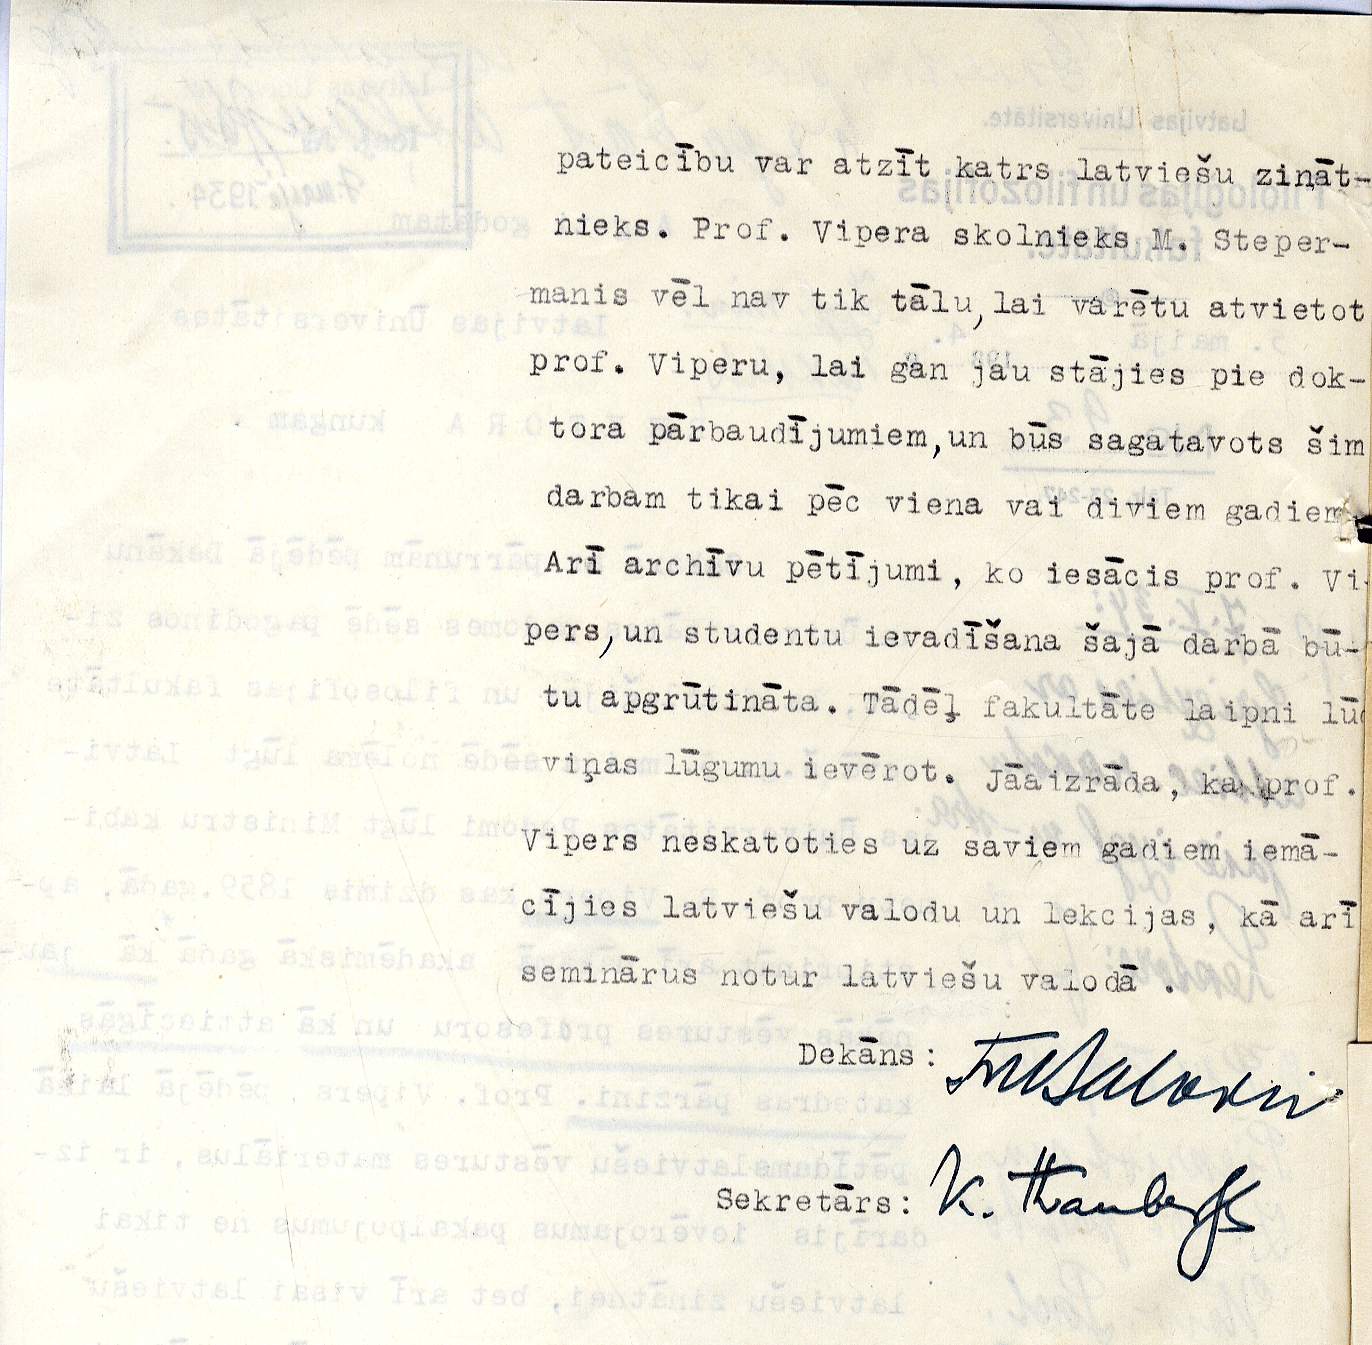 pateicību var atzīt katrs latviešu zināt-
nieks. Prof. Vipera skolnieks M. Steper-
manis vēl nav tik tālu, lai varētu atvietot
prof. Viperu, lai gan jau stājies pie dok-
tora pārbaudījumiem, un būs sagatavots šim
darbam tikai pēc viena vai diviem gadiem.
Arī archīvu pētījumi, ko iesācis prof. Vi-
pers, un studentu ievadīšana šajā darbā bū-
tu apgrūtināta. Tādēļ fakultāte laipni
viņas lūgumu ievērot. Jāaizrāda, ka prof.
Vipers neskatoties uz saviem gadiem iemā-
cījies latviešu valodu un lekcijas, kā arī
seminārus notur latviešu valodā .
Dekāns:
Sekretārs: K.